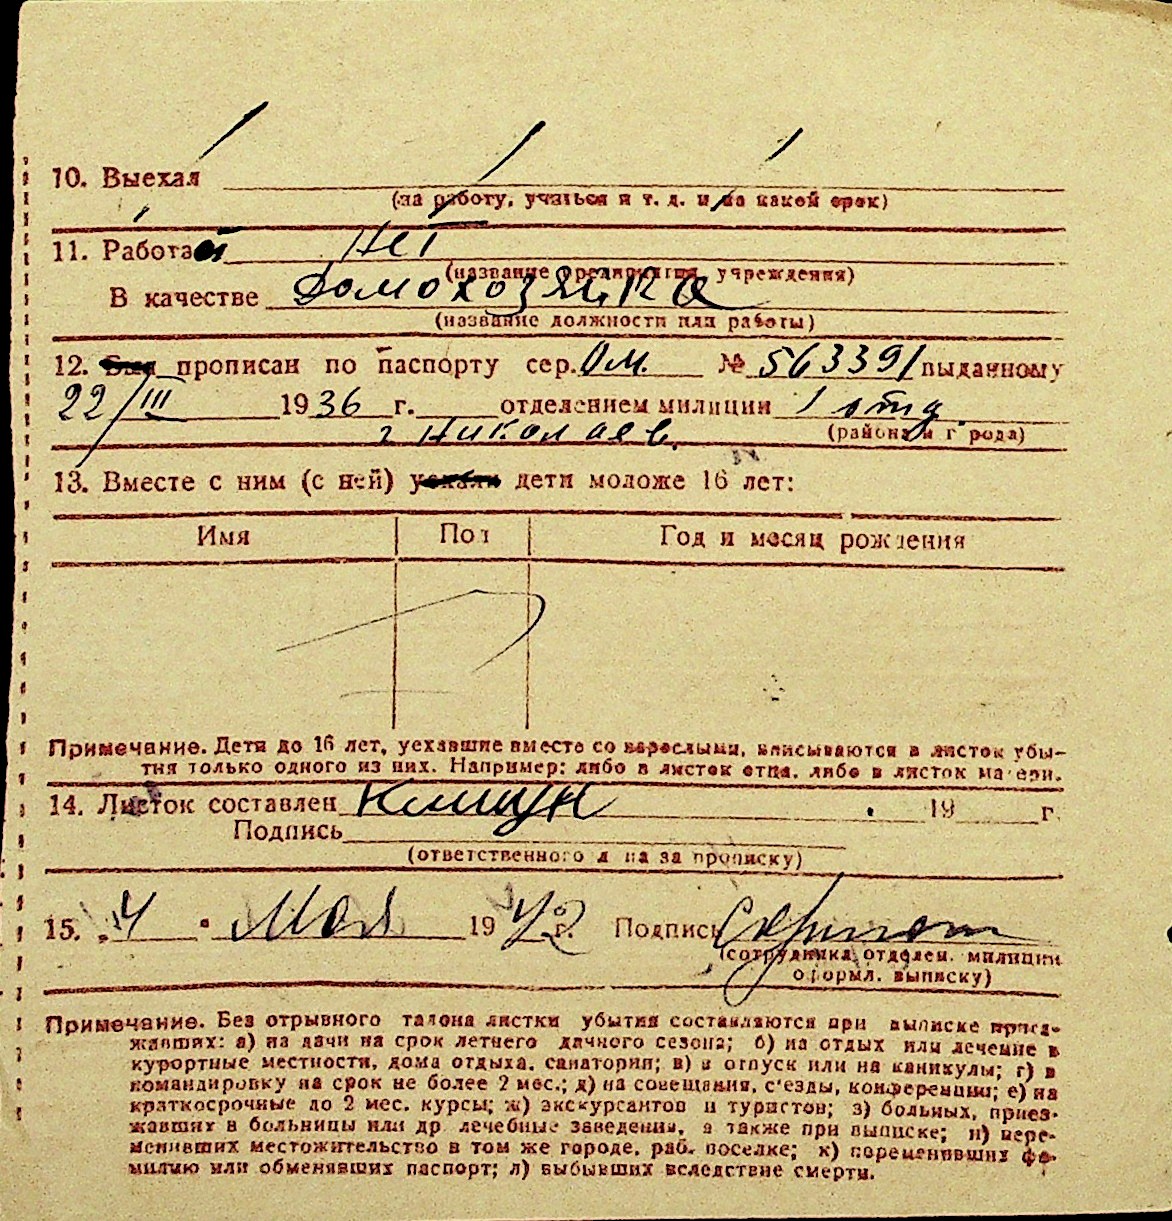 10. Выехал
(на работу, учиться и т. д. и на какой срок)
11. Работает нет
(название предприятия, учреждения)
В качестве домохозяйка
(название должности или работы)
12. Был прописан по паспорту сер. Ом. № 563391 выданному
22/III 1936 г. отделением милиции 1 отд
г Николаев. (района и города)
13. Вместе с ним (с ней) уехали дети моложе 16 лет:
Имя Пол Год и месяц рождения
Примечание. Дети до 16 лет, уехавшие вместе со взрослыми, вписываются в листок убы-
тия только одного из них. Например: либо в листок отца, либо в листок матери.
14. Листок составлен 19 г.
Подпись
(ответственного лица за прописку)
15. 4 Мая 1942 г. Подпись
(сотрудника отделен. милиции
оформл. выписку)
Примечание. Без отрывного талона листки убытия составляются при выписке приез-
жавших: а) на дачи на срок летнего дачного сезона; б) на отдых или лечение в
курортные местности, дома отдыха, санатории; в) в отпуск или на каникулы; г) в
командировку на срок не более 2 мес.; д) на совещания, с'езды, конференции; е) на
краткосрочные до 2 мес. курсы; ж) экскурсантов и туристов; з) больных, приез-
жавших в больницы или др. лечебные заведения, а также при выписке; и) пере-
менивших местожительство в том же городе, раб. поселке; к) переменивших фа-
милию или обменявших паспорт; л) выбывших вследствие смерти.